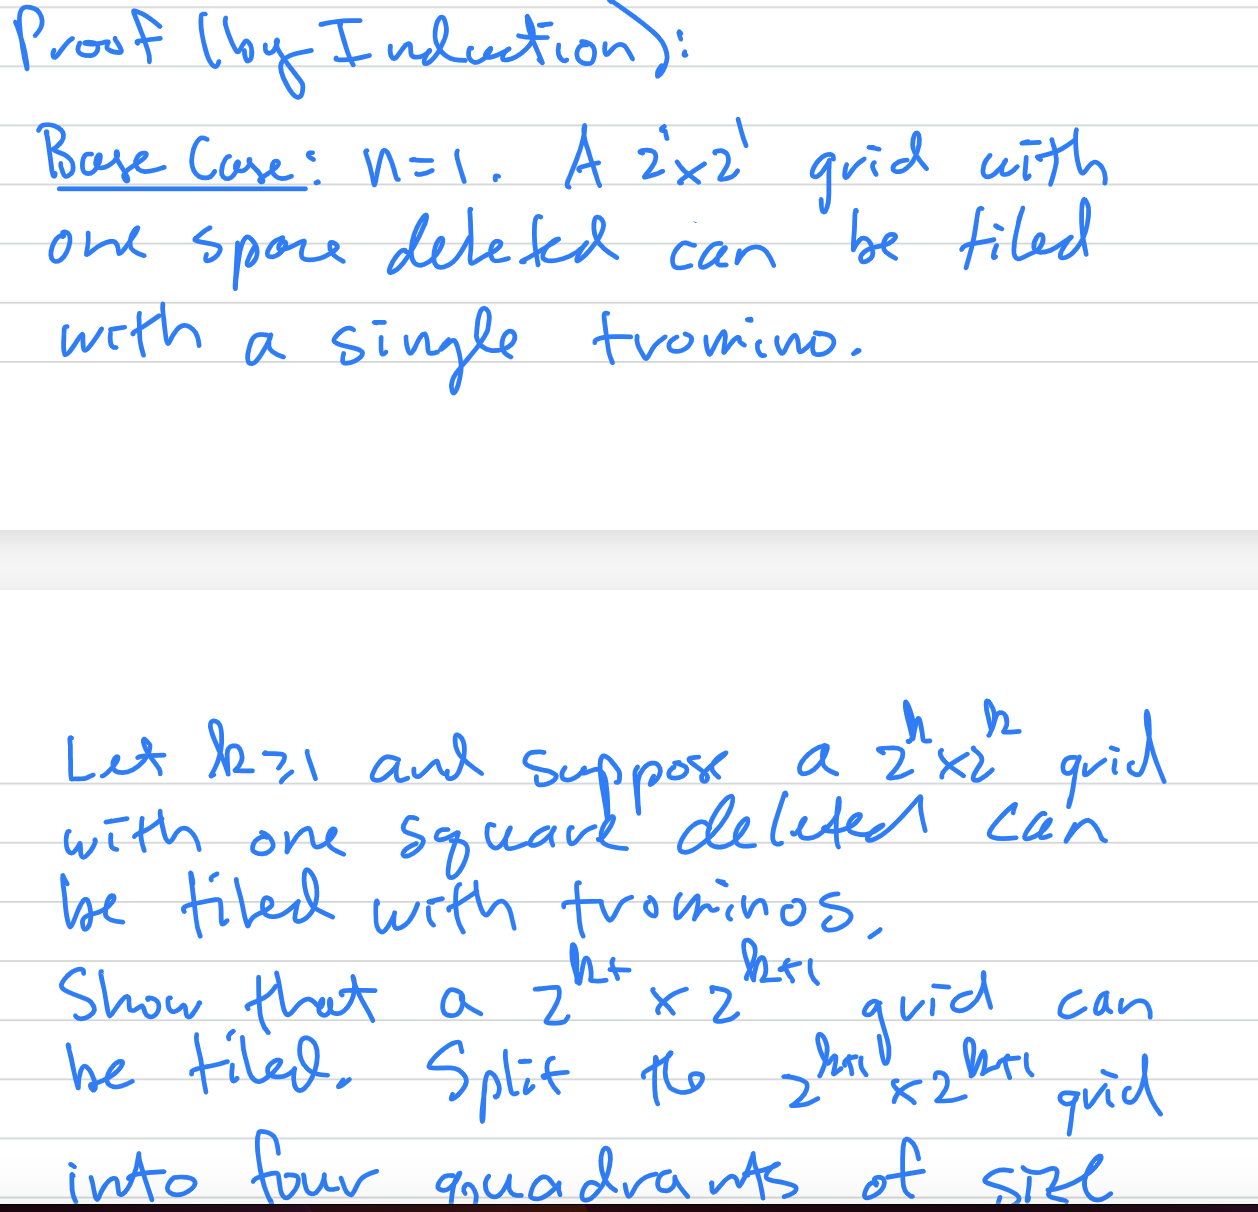 Proof (by Induction):
Base Case: n=1. A 2¹×2¹ grid with
one space deleted can be tiled
with a single tromino.
Let k≥1 and suppose a 2ᵏ×2ᵏ grid
with one square deleted can
be tiled with trominos.
Show that a 2ᵏ⁺ × 2ᵏ⁺¹ grid can
be tiled. Split the 2ᵏ⁺¹×2ᵏ⁺¹ grid
into four quadrants of size